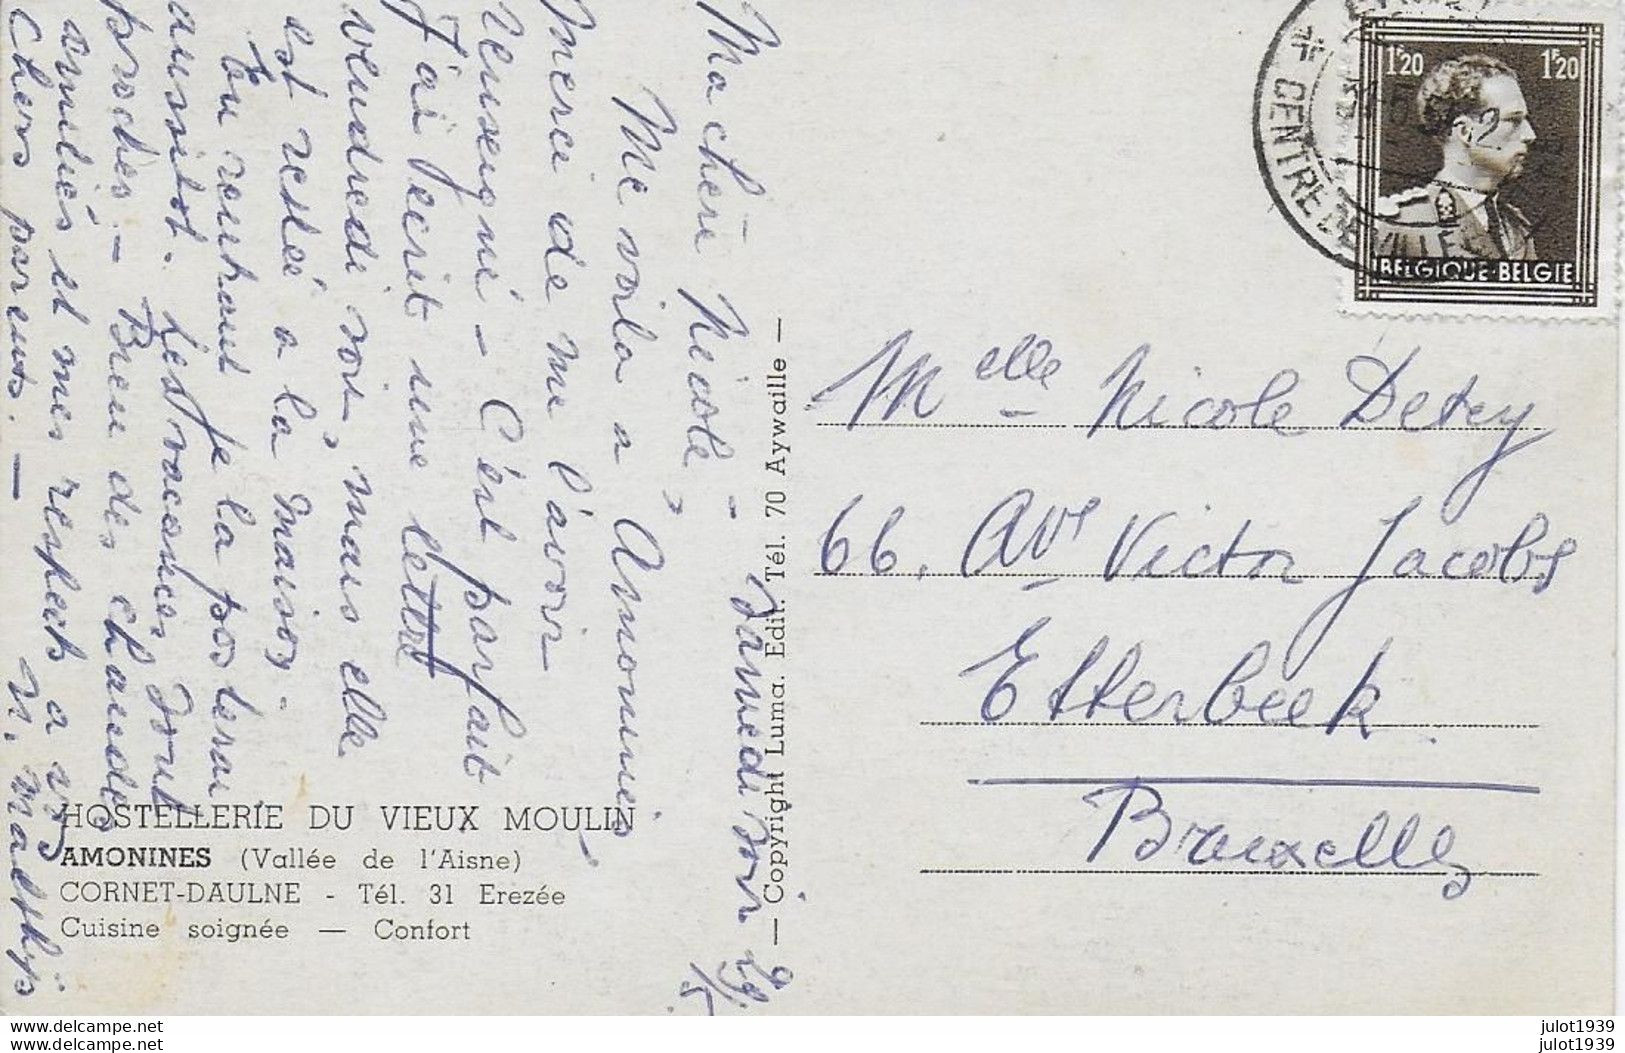 Ma chère Nicole,
- Samedi soir 29/5
Me voila a Amonines
Merci de me l'avoir
renseigné - C'est parfait
J'ai écrit une lettre
vendredi soir, mais elle
est restée à la maison -
En rentrant je la posterai
aussitot. Les vacances sont
proches. - Bien des chaudes
amitiés et mes respects a vos
chers parents. -
HOSTELLERIE DU VIEUX MOULIN
AMONINES (Vallée de l'Aisne)
CORNET-DAULNE - Tél. 31 Erezée
Cuisine soignée — Confort
— Copyright Luma. Edit. Tél. 70 Aywaille —
CENTRE DE VILLE
1F20 1F20
BELGIQUE-BELGIE
Melle Nicole Detry
66, Ave Victor Jacobs
Etterbeek
Bruxelles
www.delcampe.net
www.delcampe.net
julot1939
julot1939